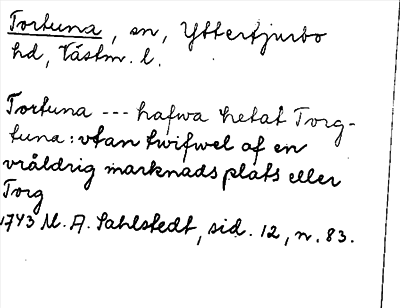 Tortuna, sn, Yttertjurbo
hd, Västm. l.
Tortuna --- hafwa hetat Torg-
tuna: vtan twifwel af en
vråldrig marknads plats eller
Torg
1743 M. A. Sahlstedt, sid. 12, n. 83.